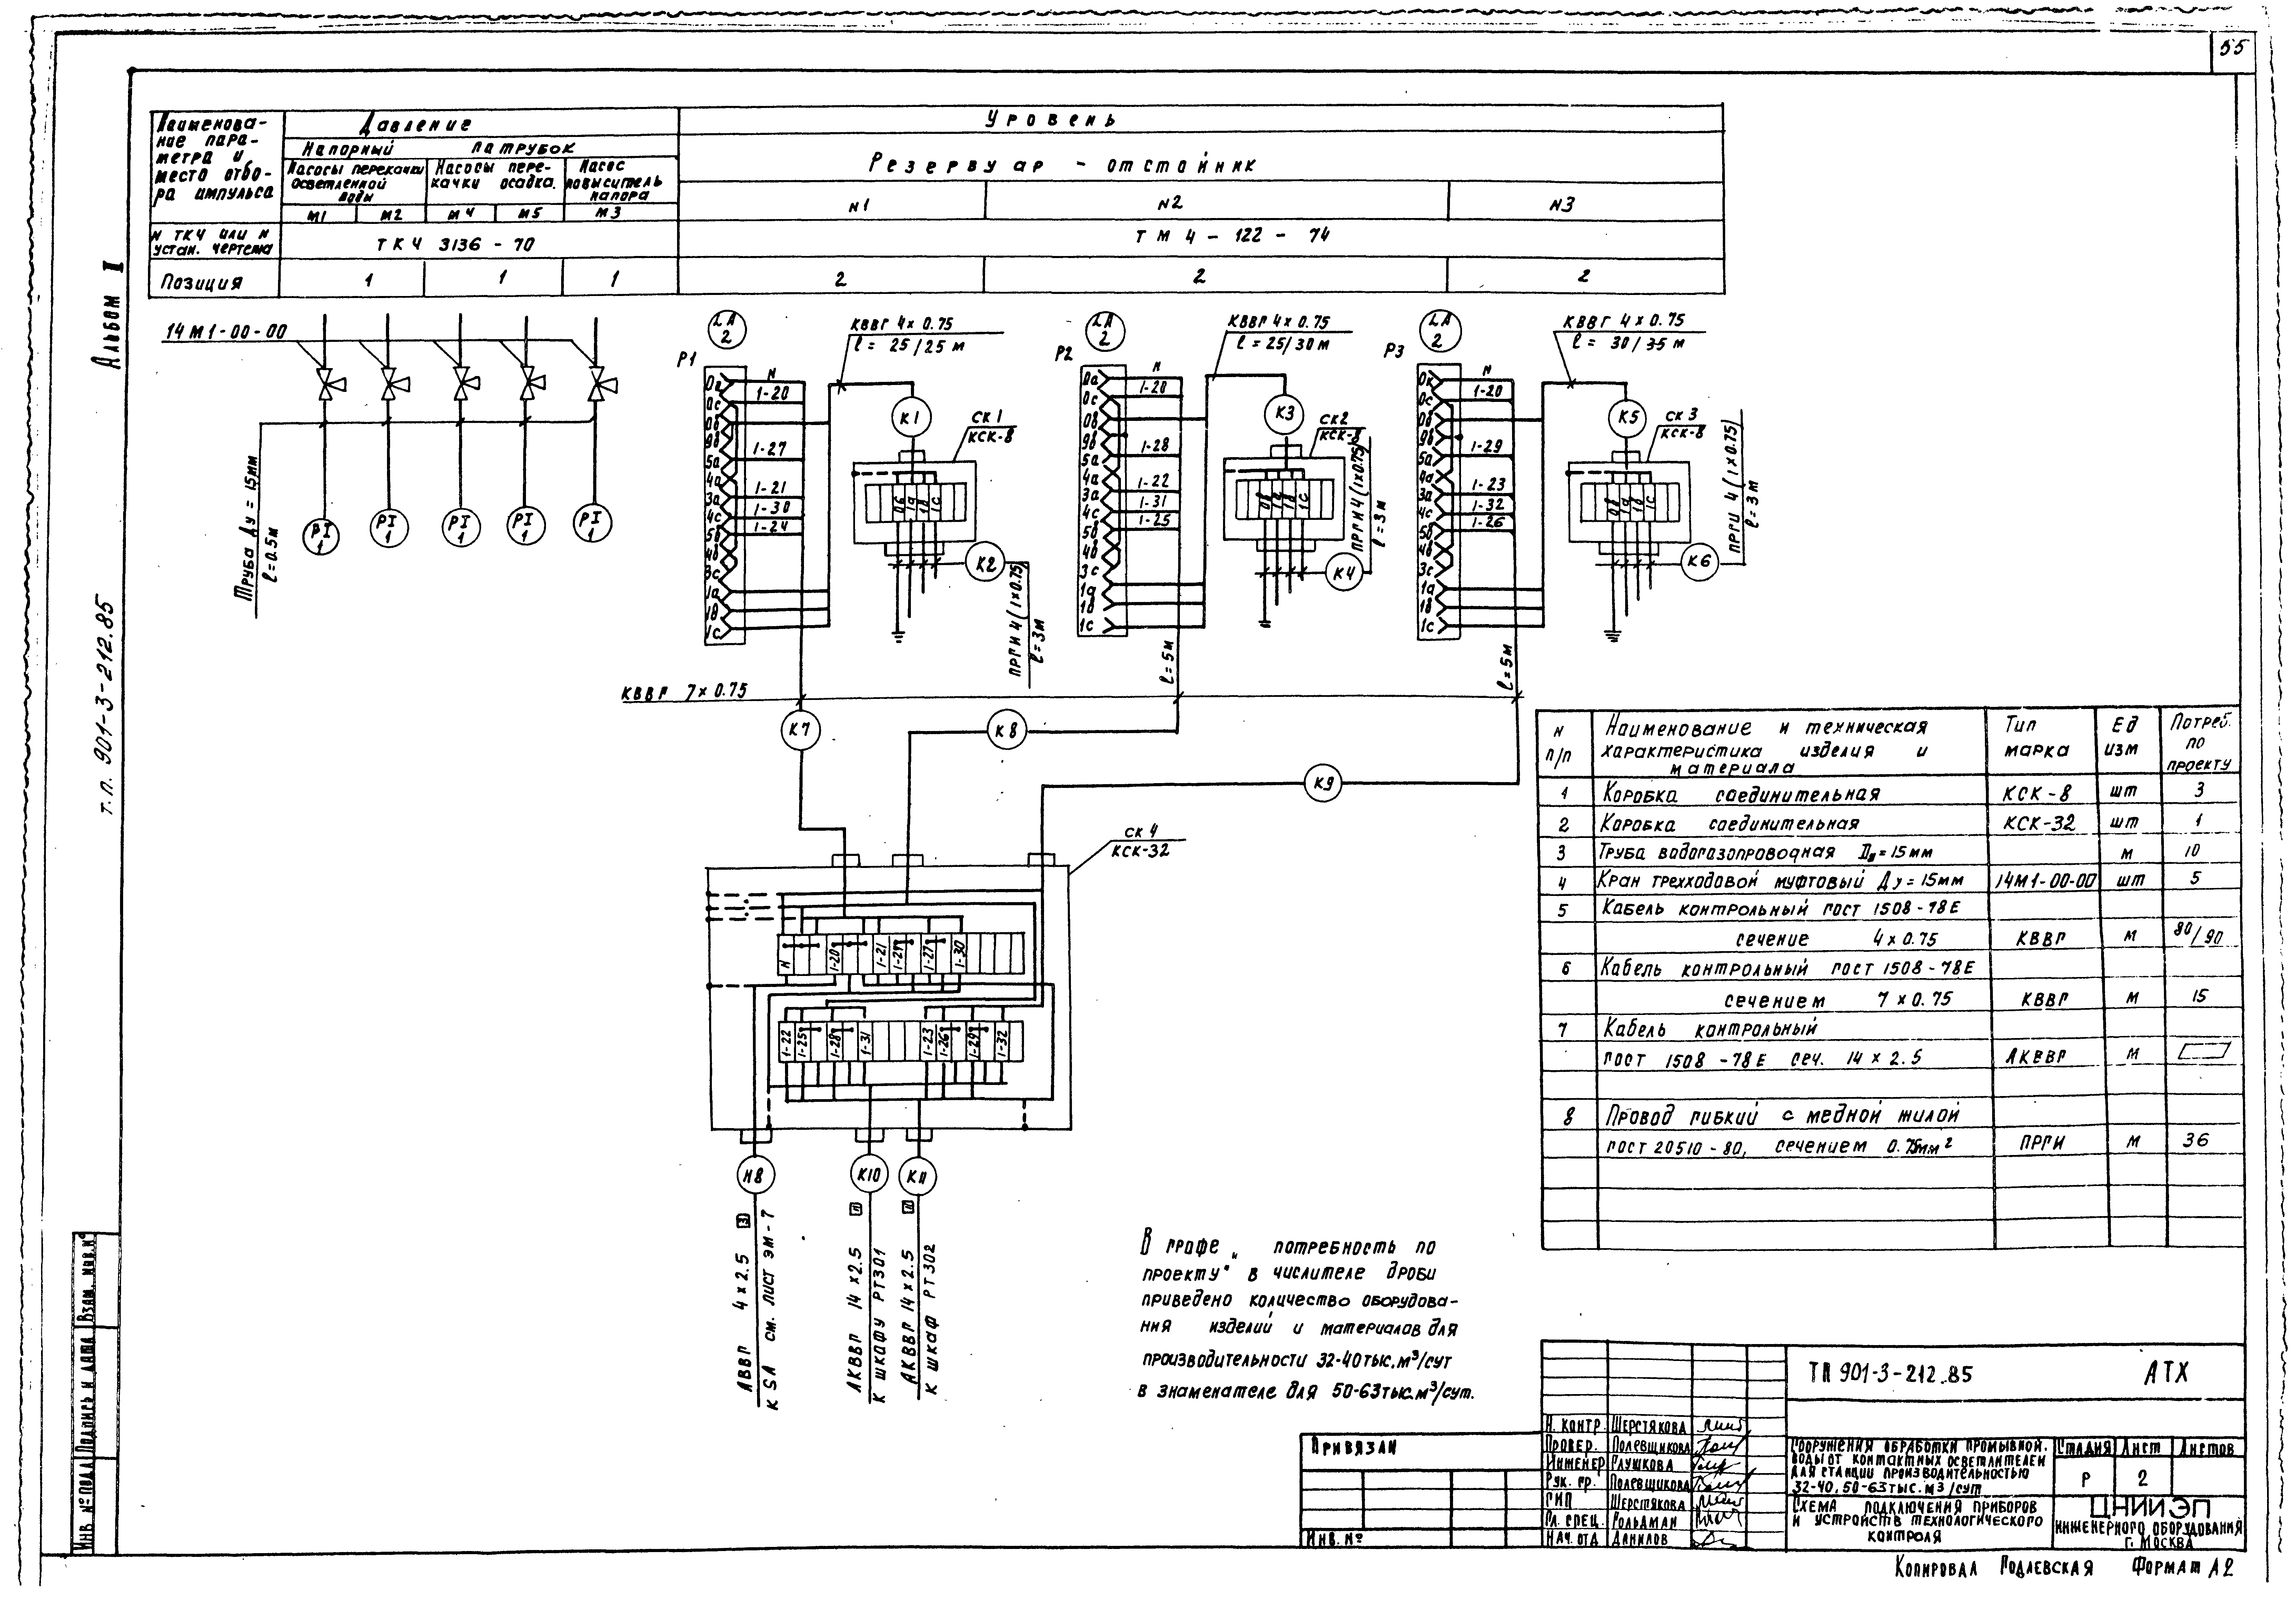 55
Альбом I
т.п. 901-3-212.85
Наименова-
ние пара-
метра и
место отбо-
ра импульса
Давление
Уровень
Напорный патрубок
Резервуар - отстойник
Насосы перекачки
осветленной
воды
Насосы пере-
качки осадка.
Насос
повыситель
напора
М1 М2 М4 М5 М3
N1 N2 N3
N ТКЧ или N
устан. чертежа
ТКЧ 3136-70
ТМ4-122-74
Позиция 1 1 1 2 2 2
14М1-00-00
Труба Ду = 15мм
ℓ=0.5м
PI
1
PI
1
PI
1
PI
1
PI
1
P1
LA
2
КВВГ 4×0.75
ℓ= 25/25 м
0а
0с
0в
9в
5а
4а
3а
4с
5в
4в
3с
1а
1в
1с
N
1-20
1-27
1-21
1-30
1-24
К1
СК1
КСК-8
0б 1а 1в 1с
К2
ПРГИ 4(1×0.75)
ℓ=3м
P2
LA
2
КВВГ 4×0.75
ℓ=25/30м
0а
0с
0в
9в
5а
4а
3а
4с
5в
4в
3с
1а
1в
1с
N
1-20
1-28
1-22
1-31
1-25
К3
СК2
КСК-8
0в 1а 1в 1с
К4
ПРГИ 4(1×0.75)
ℓ=3м
ℓ=5м
P3
LA
2
КВВГ 4×0.75
ℓ= 30/35 м
0а
0с
0в
9в
5а
4а
3а
4с
5в
4в
3с
1а
1в
1с
N
1-20
1-29
1-23
1-32
1-26
К5
СК3
КСК-8
0в 1а 1в 1с
К6
ПРГИ 4(1×0.75)
ℓ=3м
ℓ=5м
КВВГ 7×0.75
К7
К8
К9
СК4
КСК-32
N 1-20 1-21 1-24 1-27 1-30
1-22 1-25 1-28 1-31 1-23 1-26 1-29 1-32
Н8
К10
К11
АВВГ 4×2.5 3
к SA см. лист ЭМ-7
АКВВГ 14×2.5 11
к шкафу РТ301
АКВВГ 14×2.5 11
к шкаф РТ302
N
п/п
Наименование и техническая
характеристика изделия и
материала
Тип
марка
Ед
изм
Потреб.
по
проекту
1 Коробка соединительная КСК-8 шт 3
2 Коробка соединительная КСК-32 шт 1
3 Труба водогазопроводная Ду=15мм м 10
4 Кран трехходовой муфтовый Ду=15мм 14М1-00-00 шт 5
5 Кабель контрольный ГОСТ 1508-78Е
сечение 4×0.75 КВВГ м 80/90
6 Кабель контрольный ГОСТ 1508-78Е
сечением 7×0.75 КВВГ м 15
7 Кабель контрольный
ГОСТ 1508-78Е сеч. 14×2.5 АКВВГ м
8 Провод гибкий с медной жилой
ГОСТ 20510-80, сечением 0.75мм² ПРГИ м 36
В графе „ потребность по
проекту" в числителе дроби
приведено количество оборудова-
ния изделий и материалов для
производительности 32-40тыс.м³/сут
в знаменателе для 50-63тыс.м³/сут.
Инв №подл Подпись и дата Взам. инв.№
Привязан
Инв. №
ТП 901-3-212.85 АТХ
Н. контр. Шерстякова
Провер. Полевщикова
Инженер Глушкова
Рук. гр. Полевщикова
ГИП Шерстякова
Гл. спец. Гольдман
Нач. отд Данилов
Сооружения обработки промывной.
воды от контактных осветлителей
для станции производительностью
32-40, 50-63тыс.м³/сут
Стадия Лист Листов
Р 2
Схема подключения приборов
и устройств технологического
контроля
ЦНИИЭП
инженерного оборудования
г. Москва
Копировал Подлевская Формат А2